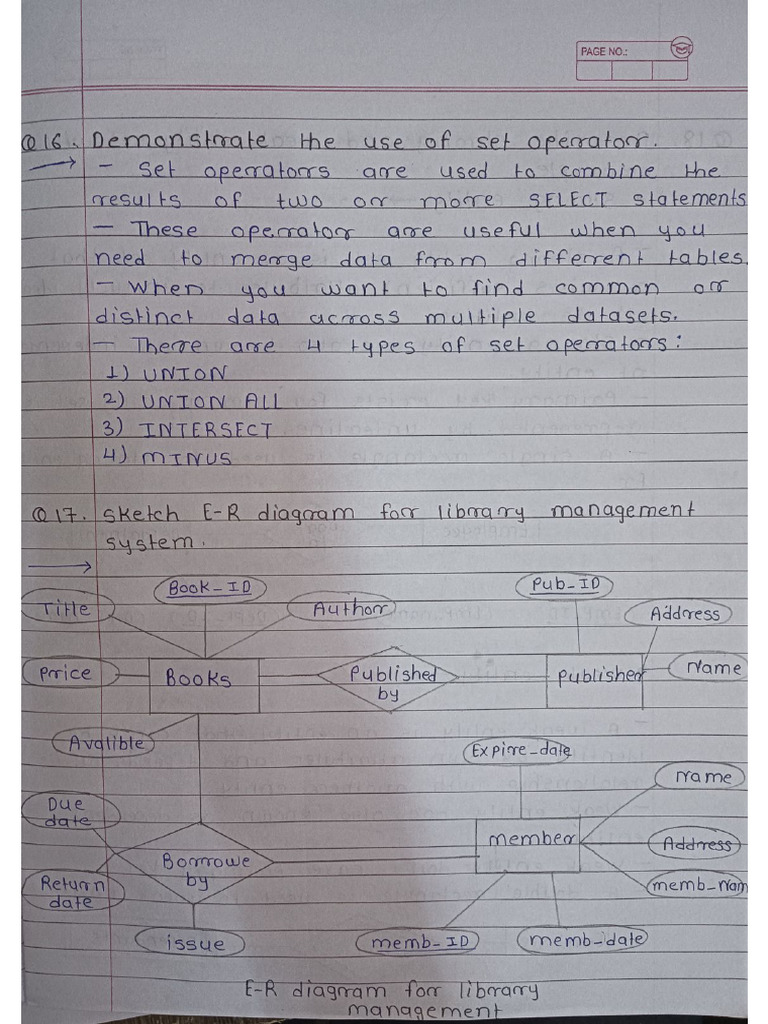 PAGE NO.:
Q16. Demonstrate the use of set operator.
→ - Set operators are used to combine the
results of two or more SELECT statements
- These operator are useful when you
need to merge data from different tables.
- When you want to find common or
distinct data across multiple datasets.
- There are 4 types of set operators:
1) UNION
2) UNION ALL
3) INTERSECT
4) MINUS
Q17. Sketch E-R diagram for library management
system.
→
Book_ID
Pub_ID
Title
Author
Address
Price
Books
Published
by
Publisher
Name
Avalible
Expire_date
Name
Due
date
member
Address
Borrowe
by
Return
date
memb_Nam
issue
memb_ID
memb_date
E-R diagram for library
management